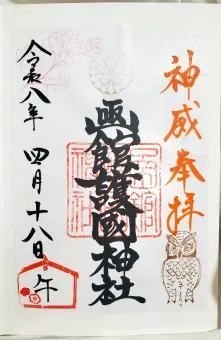 神威奉拝
函館護國神社
令和八年 四月十八日
午